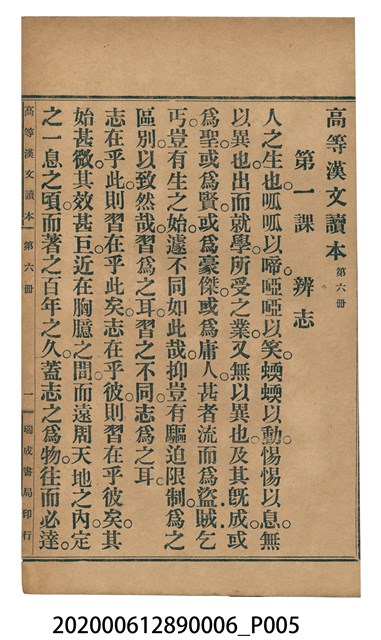 高等漢文讀本 第六冊
第一課 辨志
人之生也。呱呱以啼。啞啞以笑。蝡蝡以動。惕惕以息。無
以異也。出而就學。所受之業。又無以異也。及其旣成。或
爲聖。或爲賢。或爲豪傑。或爲庸人。甚者流而爲盜賊乞
丐。豈有生之始。遽不同如此哉。抑豈有驅迫限制。爲之
區別。以致然哉。習爲之耳。習之不同。志爲之耳
志在乎此。則習在乎此矣。志在乎彼。則習在乎彼矣。其
始甚微。其效甚巨。近在胸臆之間。而遠周天地之內。定
之一息之頃。而著之百年之久。蓋志之爲物。往而必達。
高等漢文讀本 第六冊 一 瑞成書局印行
202000612890006_P005